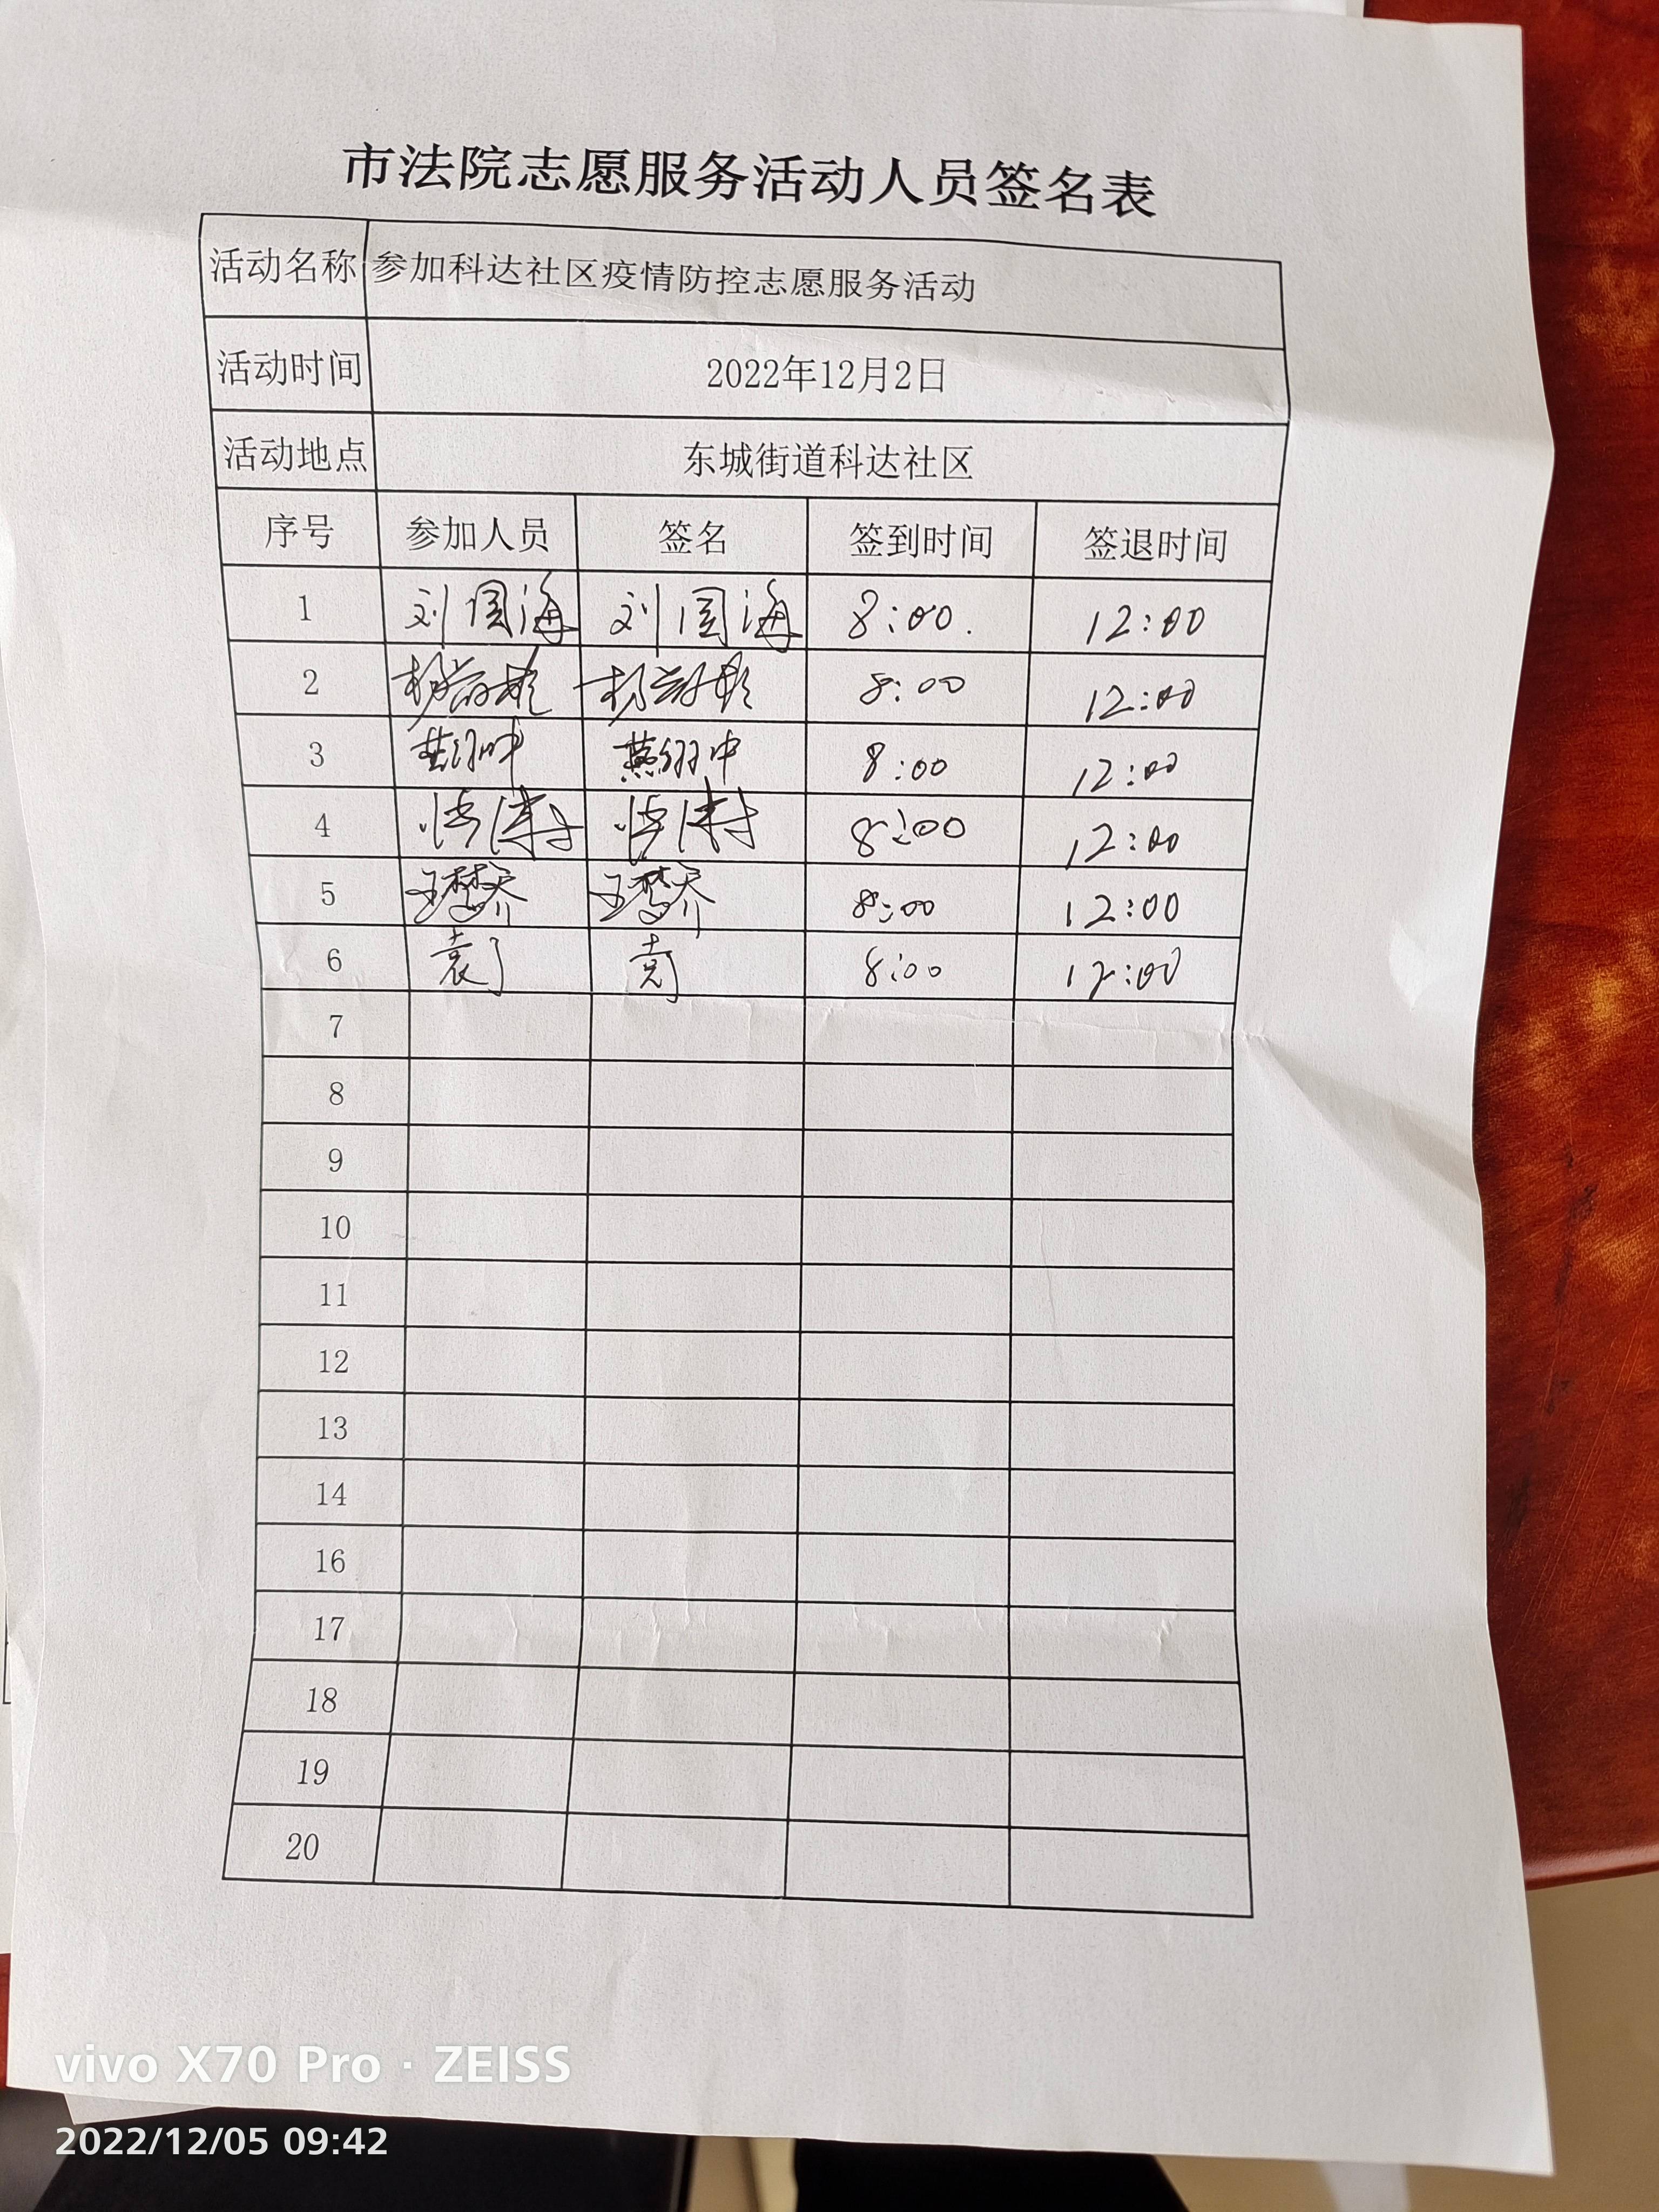 市法院志愿服务活动人员签名表
活动名称 参加科达社区疫情防控志愿服务活动
活动时间 2022年12月2日
活动地点 东城街道科达社区
序号 参加人员 签名 签到时间 签退时间
1 刘国海 刘国海 8:00. 12:00
2 8:00 12:00
3 8:00 12:00
4 8:00 12:00
5 王梦乔 王梦乔 8:00 12:00
6 8:00 12:00
7
8
9
10
11
12
13
14
16
17
18
19
20
vivo X70 Pro · ZEISS
2022/12/05 09:42